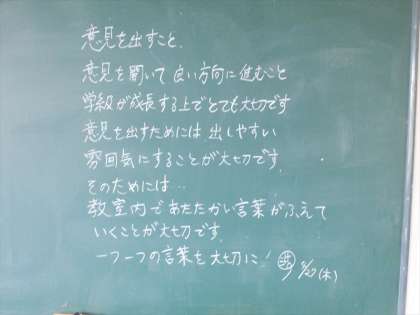 意見を出すこと、
意見を聞いて良い方向に進むこと
学級が成長する上でとても大切です
意見を出すためには出しやすい
雰囲気にすることが大切です。
そのためには…
教室内であたたかい言葉がふえて
いくことが大切です。
一つ一つの言葉を大切に!
/27(木)